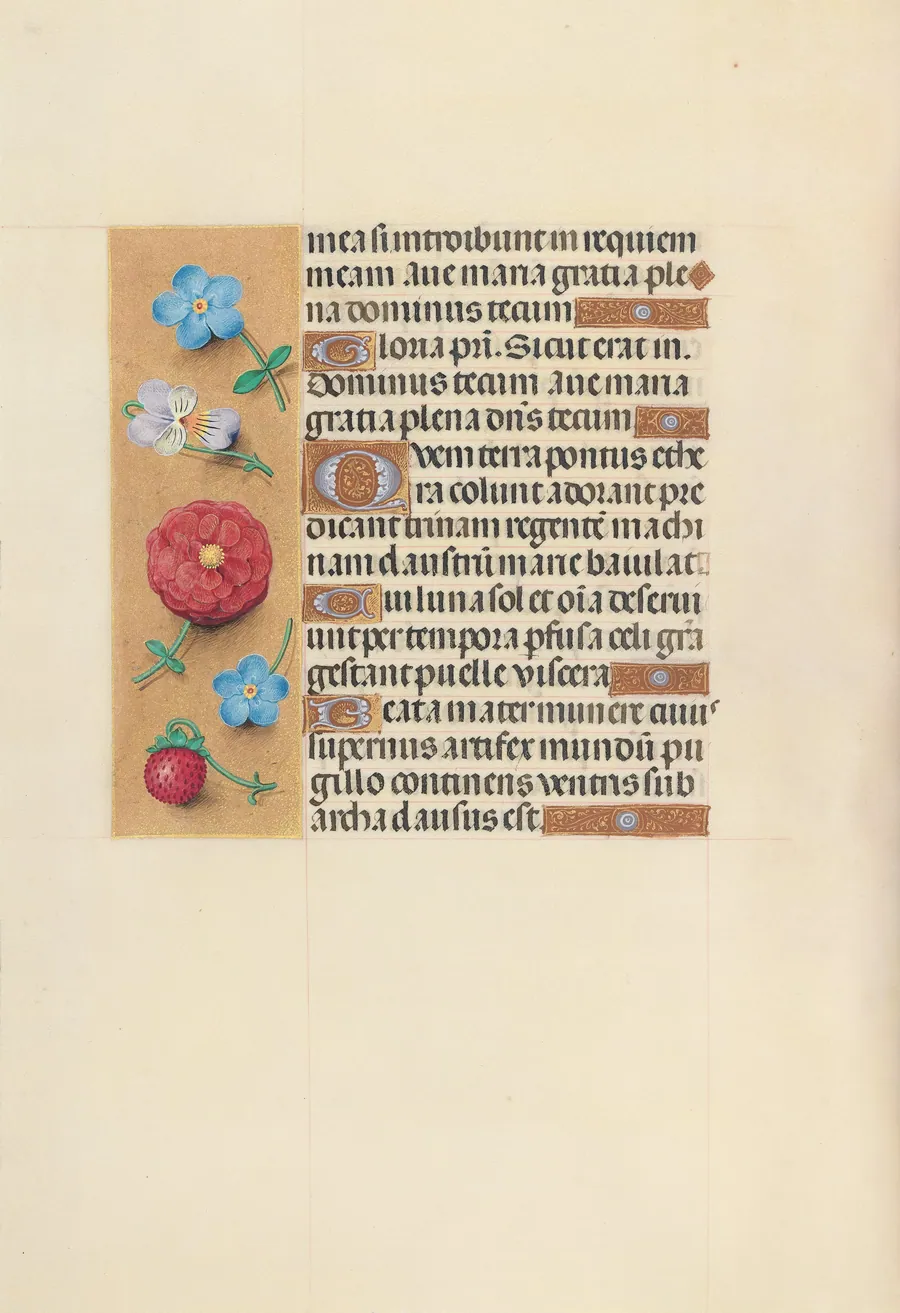 mea si introibunt in requiem
meam Aue maria gratia ple
na dominus tecum
Gloria pr̄i. Sicut erat in.
Dominus tecum Aue maria
gratia plena dn̄s tecum
Quem terra pontus ethe
ra colunt adorant pre
dicant trinam regentē machi
nam claustrū marie baiulat
Cui luna sol et oīa deserui
unt per tempora pfusa celi grā
gestant puelle viscera
Beata mater munere cuiuˢ
supernus artifex mundū pu
gillo continens ventris sub
archa clausus est